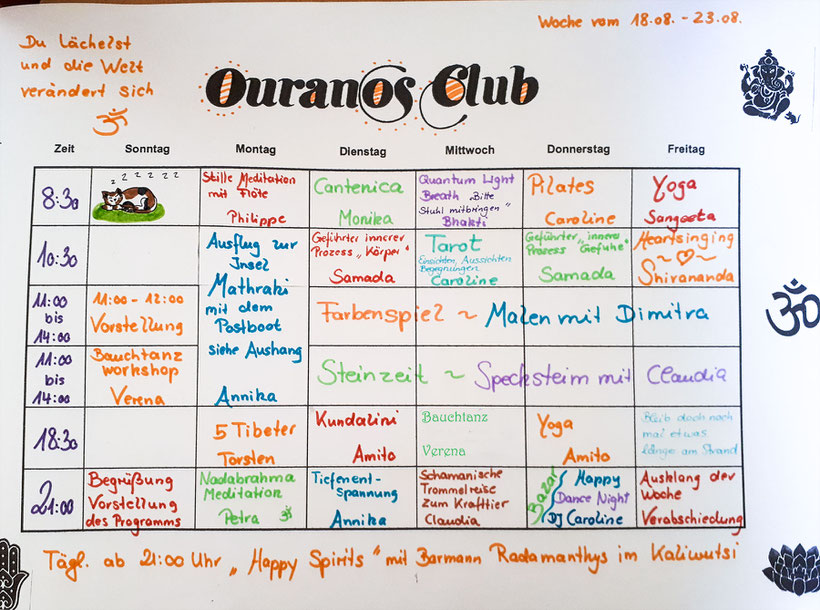 Woche vom 18.08. - 23.08.
Du Lächelst
und die Welt
verändert sich
ॐ
Ouranos Club
Zeit Sonntag Montag Dienstag Mittwoch Donnerstag Freitag
8:30
z z z z z z
Stille Meditation
mit Flöte
Philippe
Cantenica
Monika
Quantum Light
Breath „Bitte
Stuhl mitbringen"
Bhakti
Pilates
Caroline
Yoga
Sangeeta
10:30
Ausflug zur
Insel
Mathraki
mit dem
Postboot
siehe Aushang
Annika
Geführter innerer
Prozess „Körper"
Samada
Tarot
Einsichten, Aussichten
Begegnungen
Caroline
Geführter „innerer
Prozess Gefühle"
Samada
Heartsinging
~♡~
Shivananda
11:00
bis
14:00
11:00 - 12:00
Vorstellung
Farbenspiel ~ Malen mit Dimitra
11:00
bis
14:00
Bauchtanz
workshop
Verena
Steinzeit ~ Speckstein mit Claudia
18:30
5 Tibeter
Torsten
Kundalini
Amito
Bauchtanz
Verena
Yoga
Amito
Bleib doch noch
mal etwas
länger am Strand
21:00
Begrüßung
Vorstellung
des Programms
Nadabrahma
Meditation
Petra ॐ
Tiefenent-
Spannung
Annika
Schamanische
Trommelreise
zum Krafttier
Claudia
Bazar
Happy
Dance Night
DJ Caroline
Ausklang der
Woche
Verabschiedung
ॐ
Tägl. ab 21:00 Uhr „Happy Spirits" mit Barmann Radamanthys im Kaliwutsi